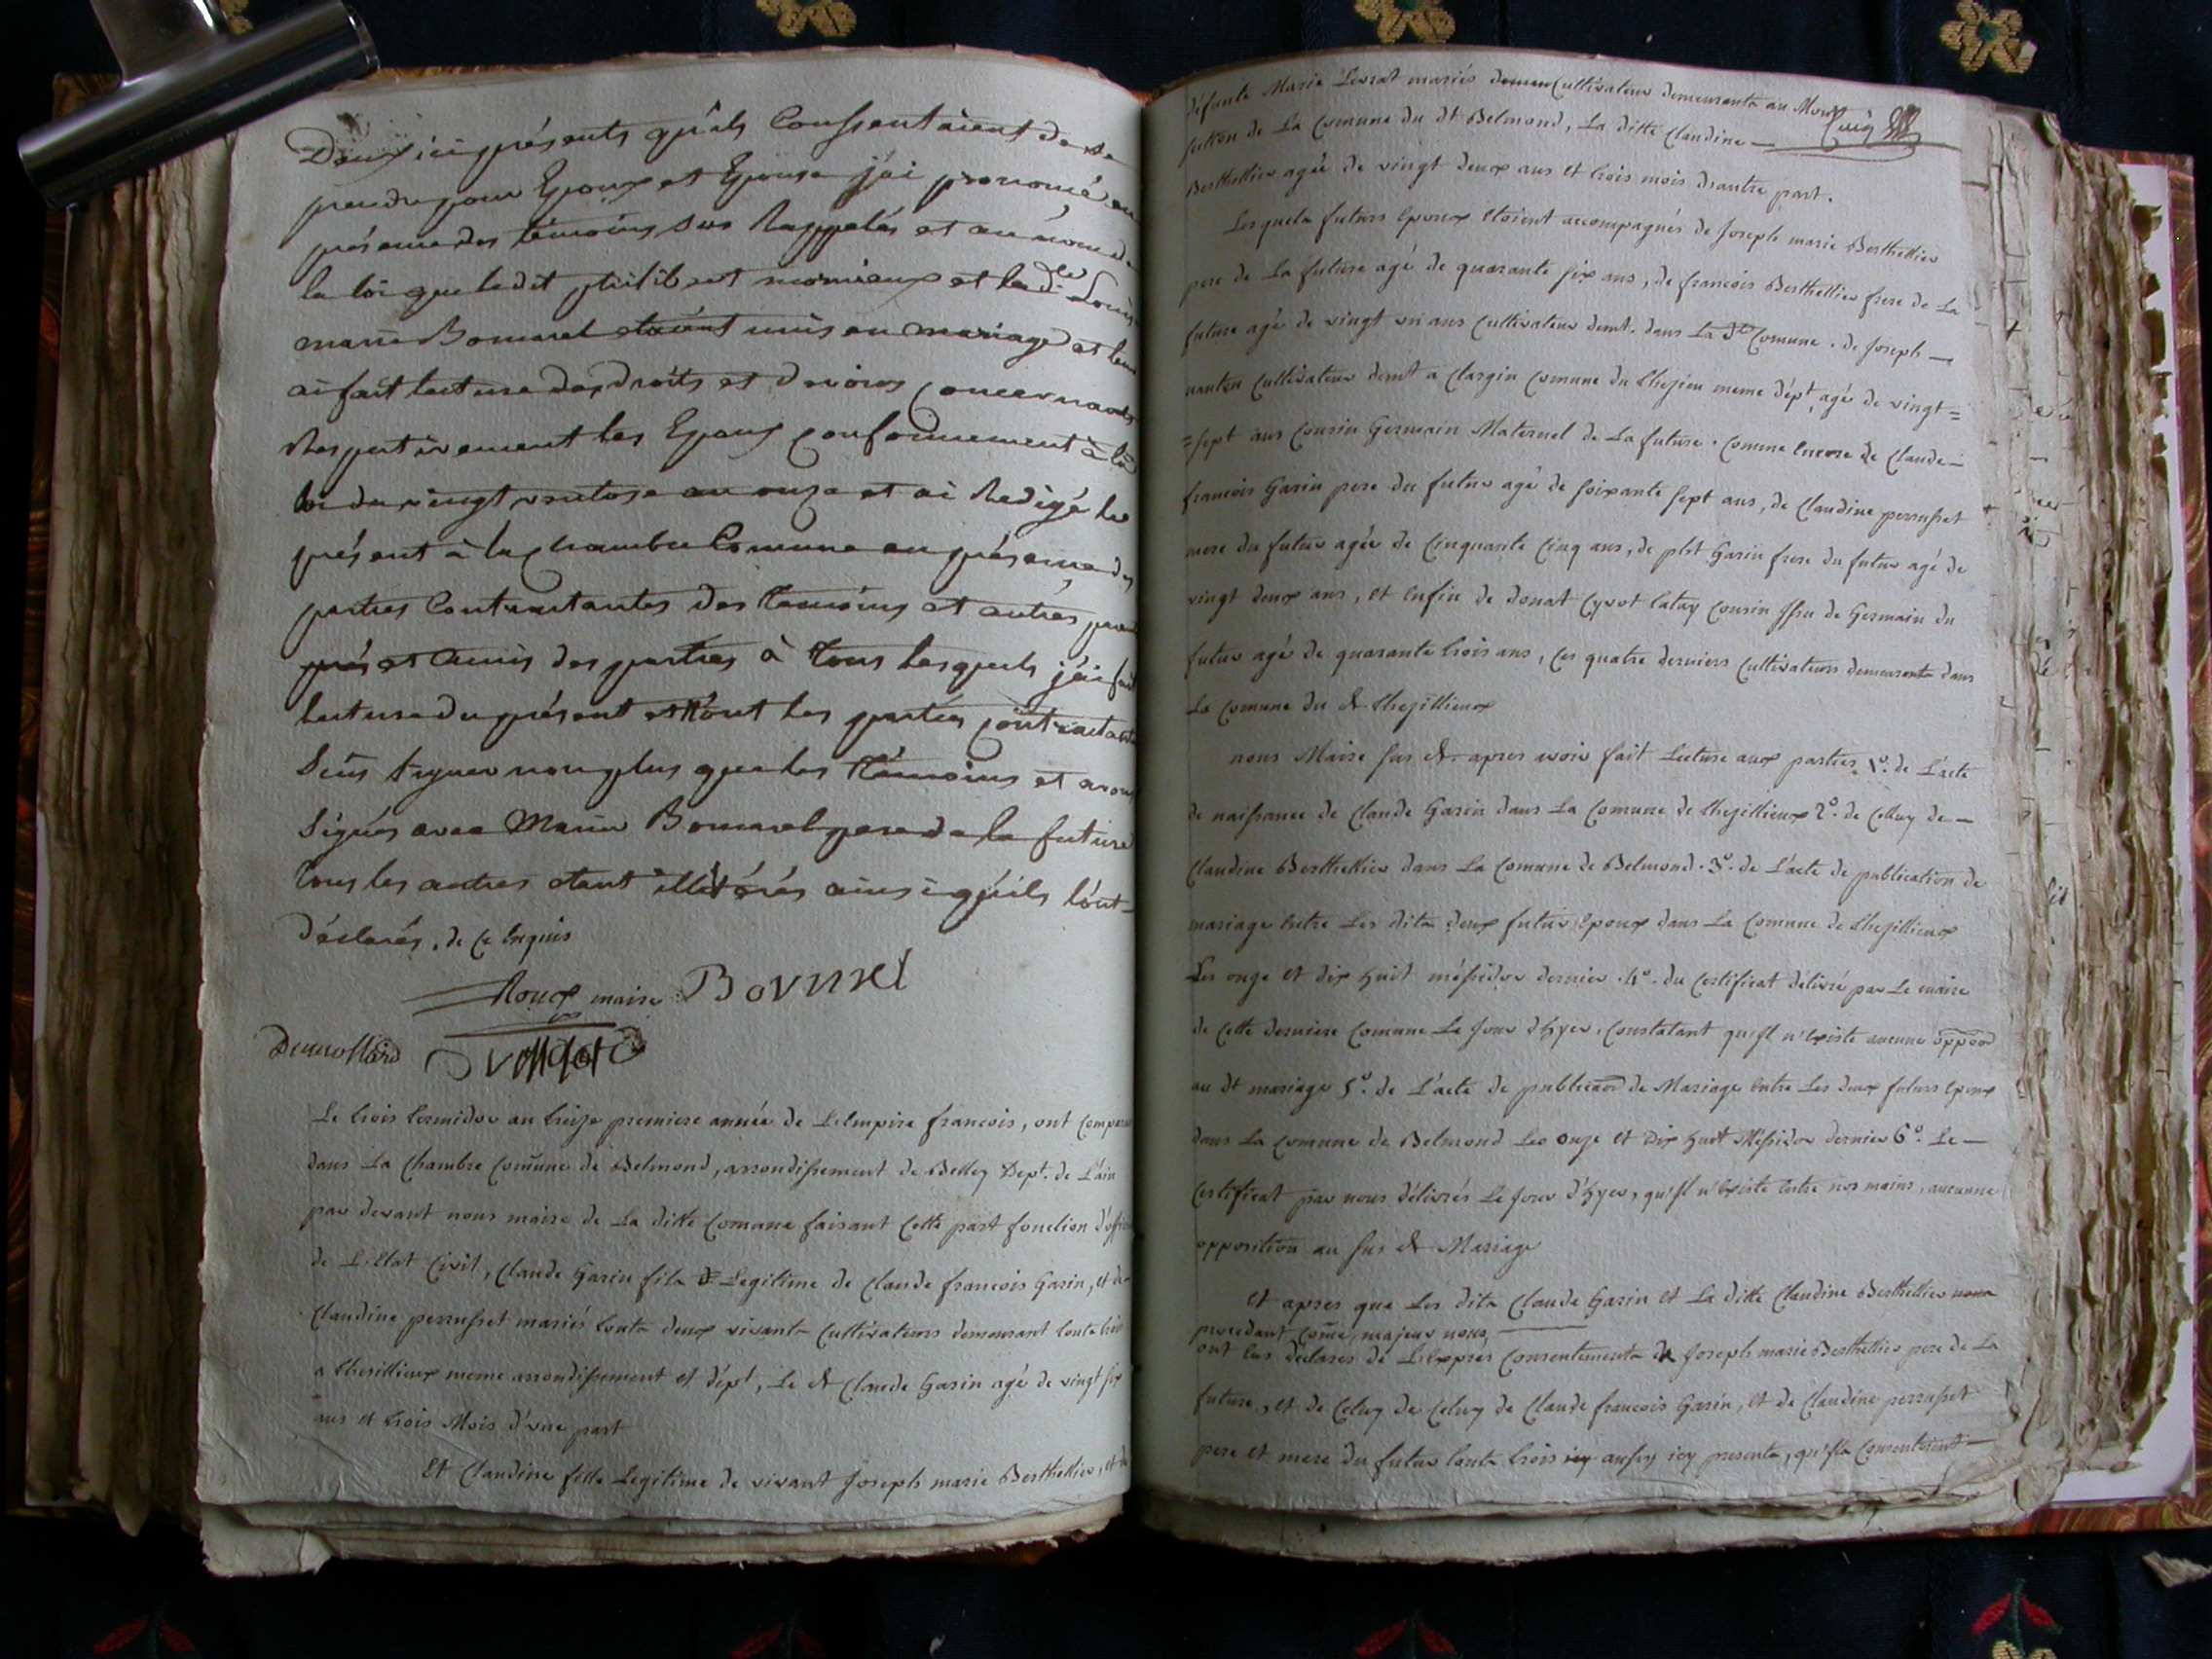 Deux ici présents qu'ils Conssentaient de se
prendre pour Epoux et Epouse j'ai prononcé au
présence des témoins sus Rappelés et au nom de
la loi que ledit philibert et la d.lle Louise
marie Bonnarel étaient unis en mariage et leur
ai fait lecture des droits et devoirs Concernants
Respectivement les Epoux conformement à la
loi du vingt ventose an onze et ai Redigé le
présent à la Chambre Comune en présence des
parties Contractantes des témoins et autres
et amis des parties à tous lesquels j'ai fait
lecture du présent et n'ont les parties contractantes
Seus signer non plus que les témoins et avons
Signés avec Marin Bonnarel pere de la future
tous les autres étant illétérés ainsi qu'ils l'ont
déclarés, de ce Enquis
Roux maire
Le trois termidor an treize premiere année de L'Empire francois, ont comparu
dans La Chambre Comune de Belmond, arrondissement de Belley Dept. de L'ain
par devant nous maire de La ditte Comune faisant Cette part fonction
de L'Etat Civil, Claude Garin fils Legitime de Claude francois Garin, et de
Claudine perrusset mariés touts deux vivants Cultivateurs demeurant touts trois
a Chesillieux meme arrondissement et dépt, Le dt Claude Garin agé de vingt six
ans et trois Mois d'une part
Et Claudine fille Legitime de vivant Joseph marie Berthellier, et de
défunte Marie Levrat mariés Cultivateur demeurants au
section de La Comune du dt Belmond, La ditte Claudine —
Berthellier agée de vingt deux ans et trois mois d'autre part.
Lesquels futurs Epoux étoient accompagnés de Joseph marie Berthellier
pere de La future agé de quarante six ans, de francois Berthellier frere de La
future agé de vingt un ans Cultivateur demt. dans La dte Comune. de Joseph —
nanton Cultivateur demt a Comune du meme dépt, agé de vingt=
=sept ans Cousin Germain Maternel de La future. Comme Encore de Claude —
francois Garin pere du futur agé de soixante sept ans, de Claudine perrusset
mere du futur agée de Cinquante Cinq ans, de pbt Garin frere du futur agé de
vingt deux ans, et Enfin de donat Cousin Issu de Germain du
futur agé de quarante trois ans, Ces quatre derniers Cultivateurs demeurants dans
La Comune du dt Chesillieux
nous Maire sus dt. apres avoir fait Lecture aux parties 1o. de L'acte
de naissance de Claude Garin dans La Comune de Chesillieux 2o. de Celluy de —
Claudine Berthellier dans La Comune de Belmond. 3o. de L'acte de publication de
mariage Entre Les dits deux futur Epoux dans La Comune de Chesillieux
Les onze et dix huit méssidor dernier. 4o. du Certificat délivré par Le maire
de Cette derniere Comune Le Jour d'hyer, Constatant qu'il n'Existe aucune
au dt mariage 5o. de L'acte de publicaon de Mariage Entre Les deux futurs Epoux
dans La Comune de Belmond Les onze et Dix huit Méssidor dernier 6o. Le —
Certificat par nous délivrés Le Jour d'hyer, qu'Il n'Existe Entre nos mains, aucunne
opposition au sus dt Mariage
Et apres que Les dits Claude Garin et La ditte Claudine Berthellier nous
procedant comme majeur nous
ont Eus déclarés de L'Exprès Consentements de Joseph marie Berthellier pere de La
future, et de Celuy de Celuy de Claude francois Garin, et de Claudine perrusset
pere et mere du futur touts trois icy aussy icy presents, qu'Ils Consentoient —